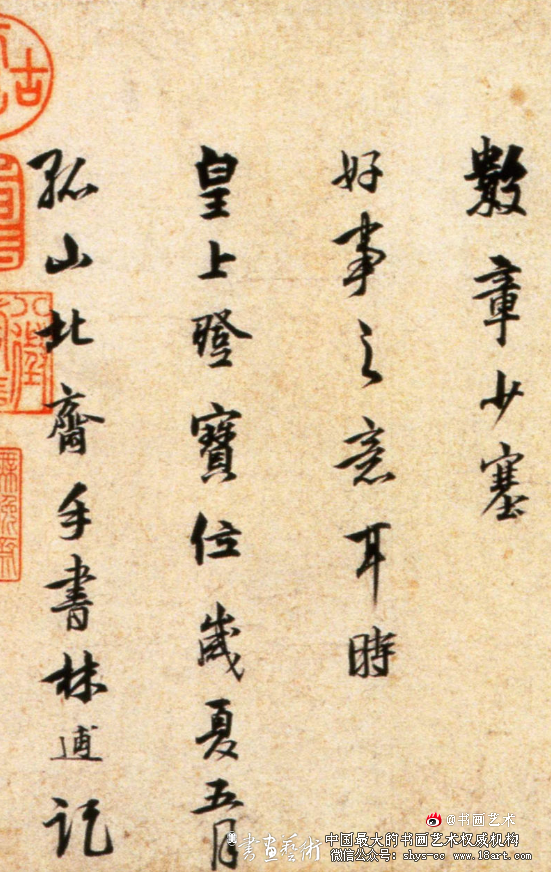 數章少塞
好事之意耳時
皇上登寶位歲夏五月
孤山北齋手書林逋記
古
@书画艺术
書畫藝術
中国最大的书画艺术权威机构
微信公众号：shys-cc www.18art.com